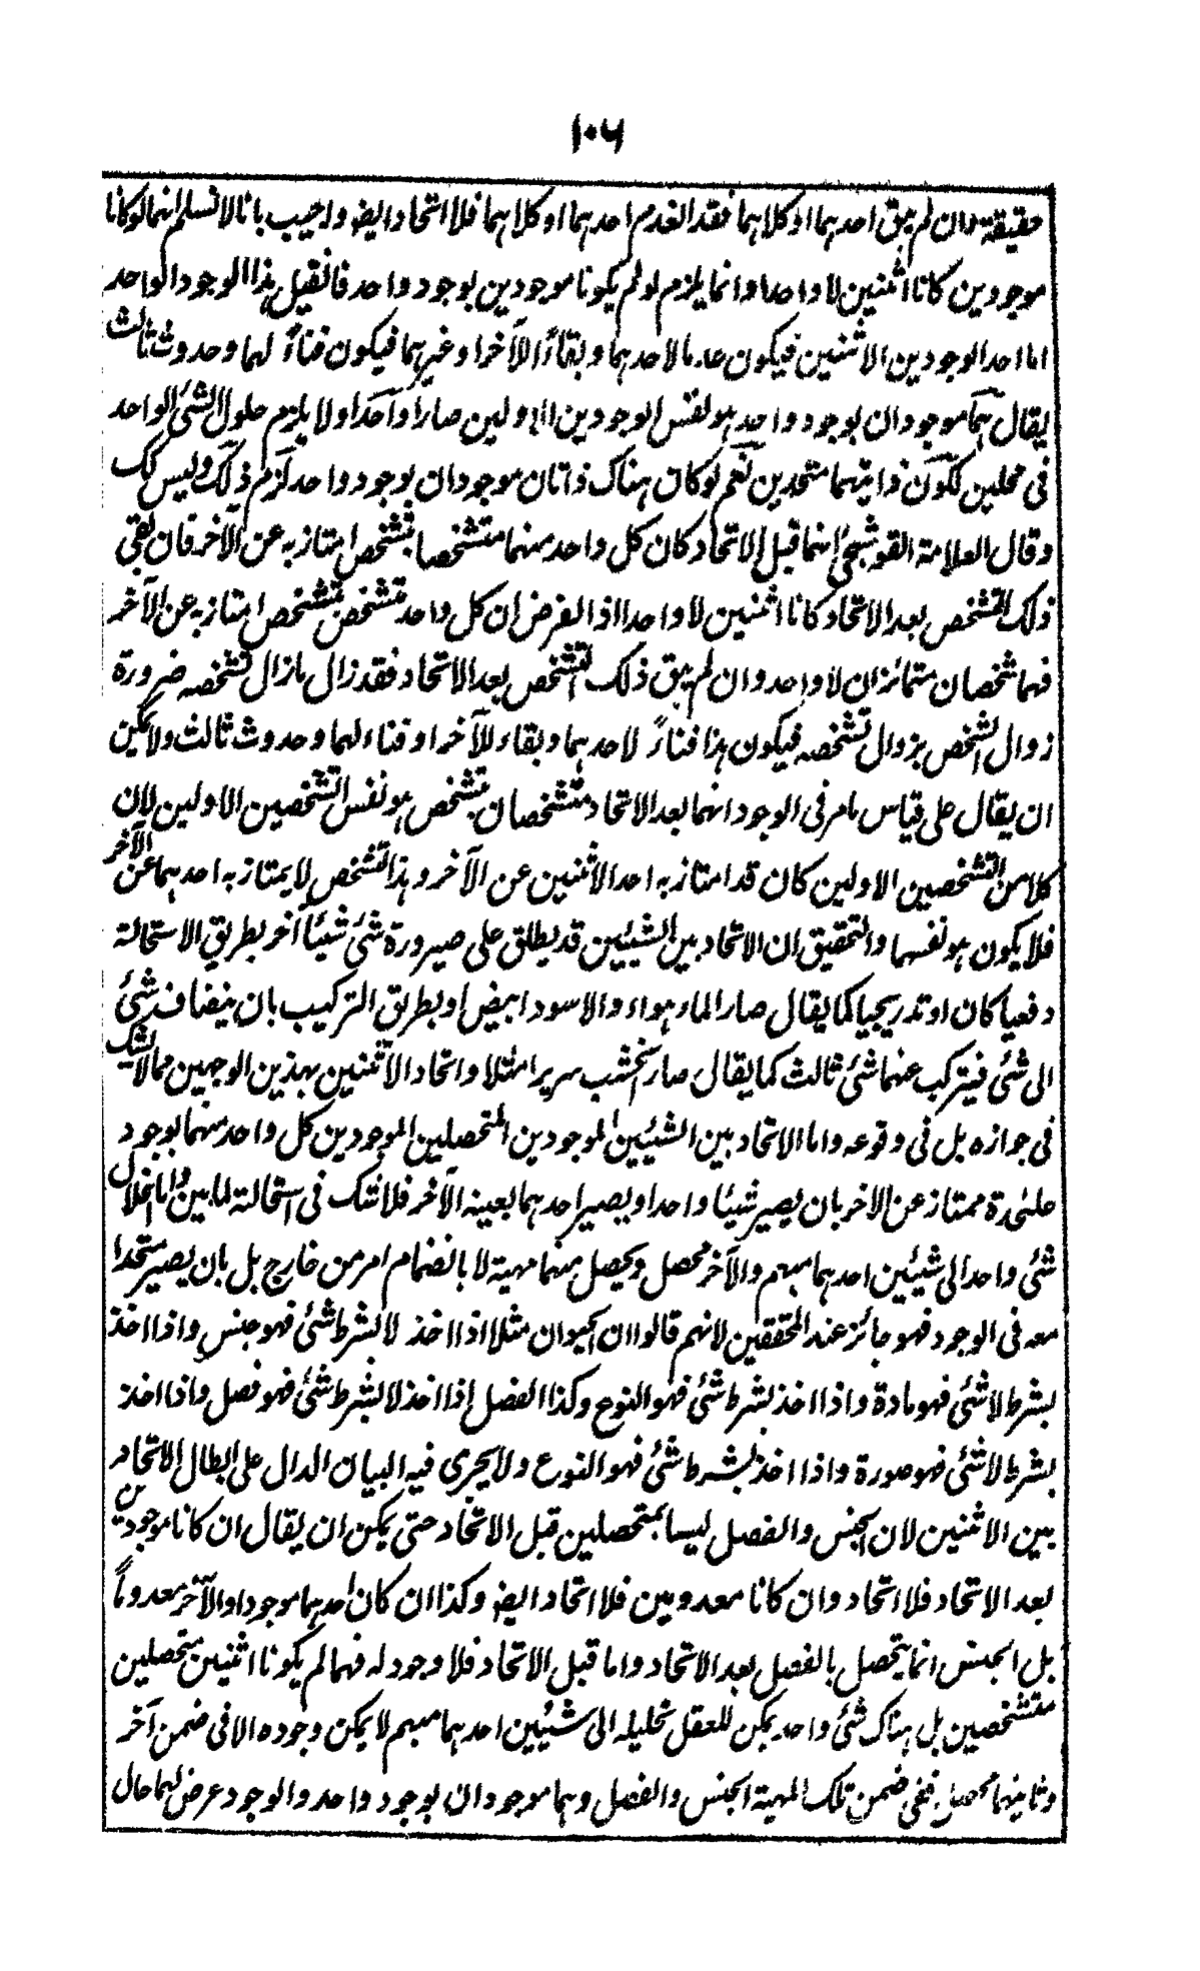 ١٠٦
حقيقة وان لم يبق احدهما او كلاهما فقد انعدم احدهما او كلاهما فلا اتحاد ايضا واجيب بانا لا نسلم انهما لو كانا
موجودين كانا اثنين لا واحدا وانما يلزم لو لم يكونا موجودين بوجود واحد فان قيل هذا الوجود الواحد
اما احد الوجودين الاثنين فيكون عدما لاحدهما وبقاءً للآخر او غيرهما فيكون فناءً لهما وحدوث ثالث
يقال هما موجودان بوجود واحد هو نفس الوجودين الاولين صارا واحدا ولا يلزم حلول الشئ الواحد
فى محلين لكون ذاتيهما متحدين نعم لو كان هناك ذاتان موجودان بوجود واحد لزم ذلك وليس كك
وقال العلامة القوشجى انهما قبل الاتحاد كان كل واحد منهما متشخصا بتشخص امتاز به عن الآخر فان بقى
ذلك التشخص بعد الاتحاد كانا اثنين لا واحدا اذ الفرض ان كل واحد متشخص بتشخص امتاز به عن الآخر
فهما شخصان متمائزان لا واحد وان لم يبق ذلك التشخص بعد الاتحاد فقد زال ما زال تشخصه ضرورة
زوال الشخص بزوال تشخصه فيكون هذا فناءً لاحدهما وبقاء للآخر او فناء لهما وحدوث ثالث ولا يمكن
ان يقال على قياس ما مر فى الوجود انهما بعد الاتحاد متشخصان بتشخص هو نفس التشخصين الاولين لان
كلا من التشخصين الاولين كان قد امتاز به احد الاثنين عن الآخر وهذا التشخص لا يمتاز به احدهما عن الآخر
فلا يكون هو نفسهما والتحقيق ان الاتحاد بين الشيئين قد يطلق على صيرورة شئ شيئا آخر بطريق الاستحالة
دفعيا كان او تدريجيا كما يقال صار الماء هواء والاسود ابيض او بطريق التركيب بان ينضاف شئ
الى شئ فيتركب عنهما شئ ثالث كما يقال صار الخشب سريرا مثلا واتحاد الاثنين بهذين الوجهين مما لا شك
فى جوازه بل فى وقوعه واما الاتحاد بين الشيئين الموجودين المتحصلين الموجودين كل واحد منهما بوجود
علىٰحدة ممتاز عن الاخر بان يصير شيئا واحدا ويصير احدهما بعينه الآخر فلا شك فى استحالته لما بين واما انحلال
شئ واحد الى شيئين احدهما مبهم والآخر محصل ويحصل منهما مهية لا بانضمام امر من خارج بل بان يصير متحدا
معه فى الوجود فهو جائز عند المحققين لانهم قالوا ان الحيوان مثلا اذا اخذ لا بشرط شئ فهو جنس واذا اخذ
بشرط لا شئ فهو مادة واذا اخذ بشرط شئ فهو النوع وكذا الفصل اذا اخذ لا بشرط شئ فهو فصل واذا اخذ
بشرط لا شئ فهو صورة واذا اخذ بشرط شئ فهو النوع ولا يجرى فيه البيان الدال على ابطال الاتحاد
بين الاثنين لان الجنس والفصل ليسا بمتحصلين قبل الاتحاد حتى يمكن ان يقال ان كانا موجودين
بعد الاتحاد فلا اتحاد وان كانا معدومين فلا اتحاد ايضا وكذا ان كان احدهما موجودا والآخر معدوماً
بل الجنس انما يتحصل بالفصل بعد الاتحاد واما قبل الاتحاد فلا وجود له فهما لم يكونا اثنين متحصلين
متشخصين بل هناك شئ واحد يمكن للعقل تحليله الى شيئين احدهما مبهم لا يمكن وجوده الا فى ضمن آخر
وثانيهما محصل ففى ضمن تلك المهية الجنس والفصل وهما موجودان بوجود واحد والوجود عرض لهما حال